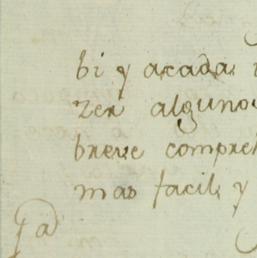 bi y acada
zer alguno
breve compre
mas facil y